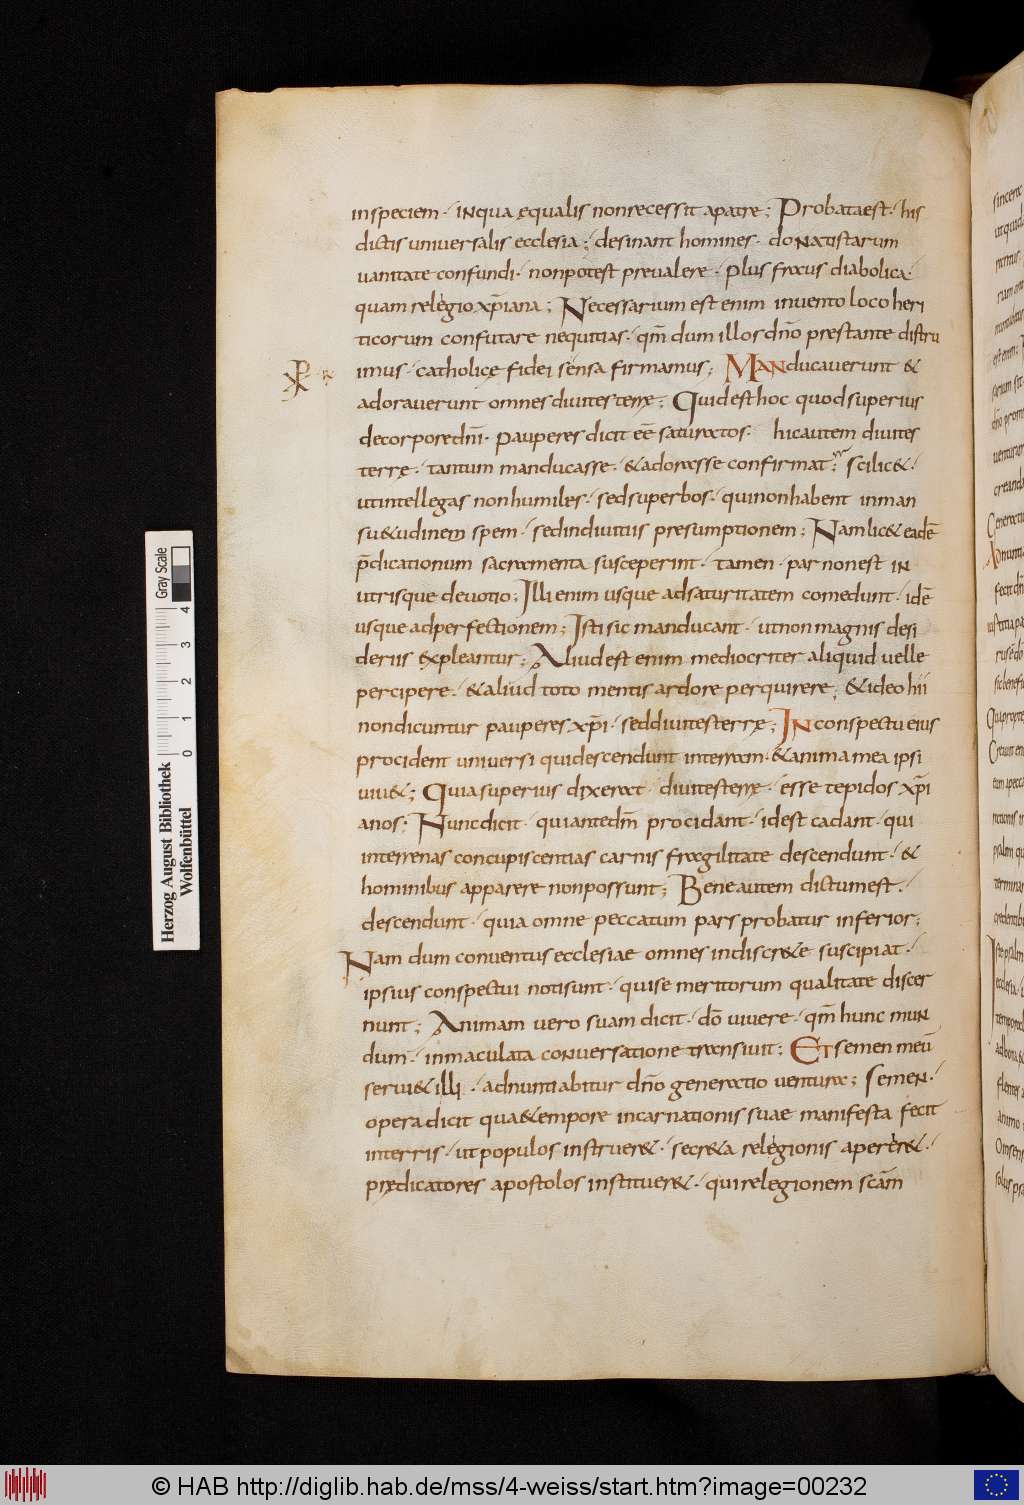 inspeciem · inqua ęqualis nonrecessit apatre ; Probataest · his
dictis universalis ecclesia ; desinant homines · donatistarum
vanitate confundi · nonpotest prevalere · plus fraus diabolica ·
quam relegio xp̄iana ; Necessarium est enim invento loco heri
ticorum confutare nequitias · qm̄ dum illos dn̄o prestante distru
imus · catholicę fidei sensa firmamus ; Manducaverunt &
adoraverunt omnes divites terrę ; Quid est hoc quod superius
decorpore dn̄i · pauperes dicit eē saturatos · hic autem divites
terrę · tantum manducasse · & adorasse confirmat ; scilic& ·
ut intellegas non humiles · sed superbos · qui non habent in man
su&udinem spem · sed in divitiis presumptionem ; Nam lic& eadē
p̄dicationum sacramenta susceperint · tamen · par non est in
utrisque devotio ; Illi enim usque ad saturitatem comedunt · idē
usque ad perfectionem ; Isti sic manducant · ut non magnis desi
deriis expleantur ; Aliud est enim mediocriter aliquid velle
percipere · & aliud toto mentis ardore perquirere ; & ideo hii
non dicuntur pauperes xp̄i · sed divites terrę ; In conspectu eius
procident universi qui descendunt in terram · & anima mea ipsi
viv& ; Quia superius dixerat · divites terrę · esse tepidos xp̄i
anos ; Nunc dicit · qui ante dm̄ procidant · id est cadant · qui
in terrenas concupiscentias carnis fragilitate descendunt · &
hominibus apparere non possunt ; Bene autem dictum est ·
descendunt · quia omne peccatum pars probatur inferior ;
Nam dum conventus ecclesiae omnes indiscr&e suscipiat ·
ipsius conspectui noti sunt · qui se meritorum qualitate discer
nunt ; Animam vero suam dicit · dō vivere · qm̄ hunc mun
dum · inmaculata conversatione transivit ; Et semen meū
servi& illi · adnuntiabitur dn̄o generatio ventura ; Semen ·
opera dicit qua&empore incarnationis suae manifesta fecit
in terris · ut populos instruer& · secr&a relegionis aperer& ·
prędicatores apostolos instituer& · qui relegionem scām
Herzog August Bibliothek
Wolfenbüttel
Gray Scale
0 1 2 3 4
© HAB http://diglib.hab.de/mss/4-weiss/start.htm?image=00232